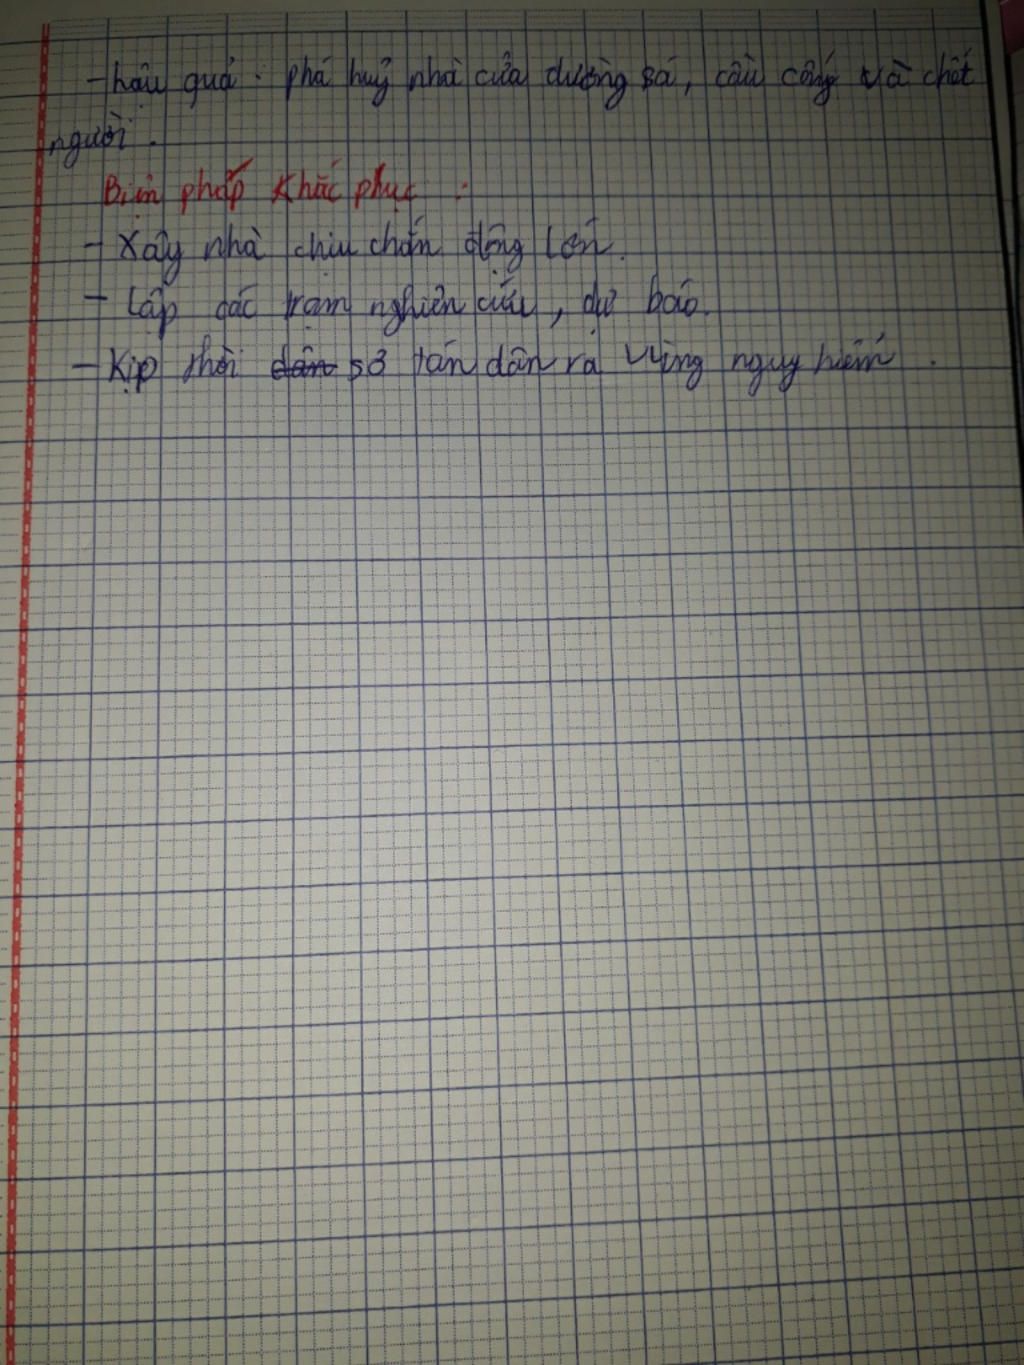 - hậu quả : phá huỷ nhà cửa đường sá, cầu cống và chết
người.
Biện pháp khắc phục :
- Xây nhà chịu chấn động lớn.
- Lập các trạm nghiên cứu, dự báo.
- Kịp thời dân sơ tán dân ra vùng nguy hiểm.